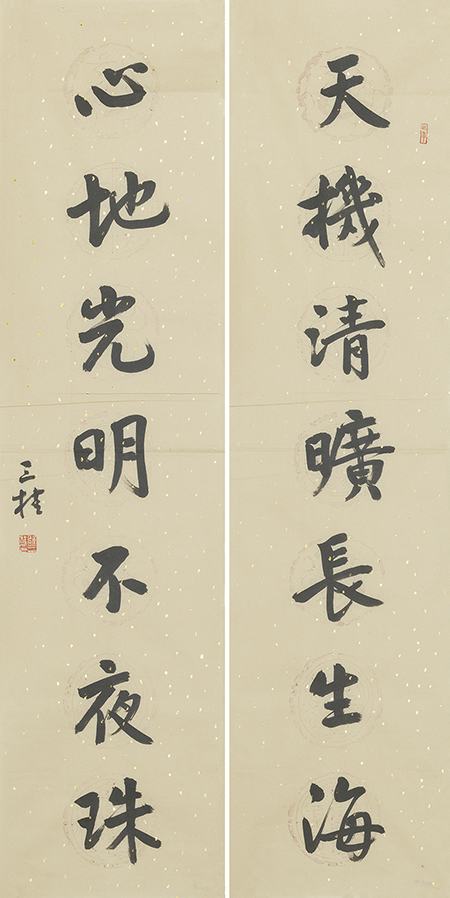 天機清曠長生海
心地光明不夜珠
三桂